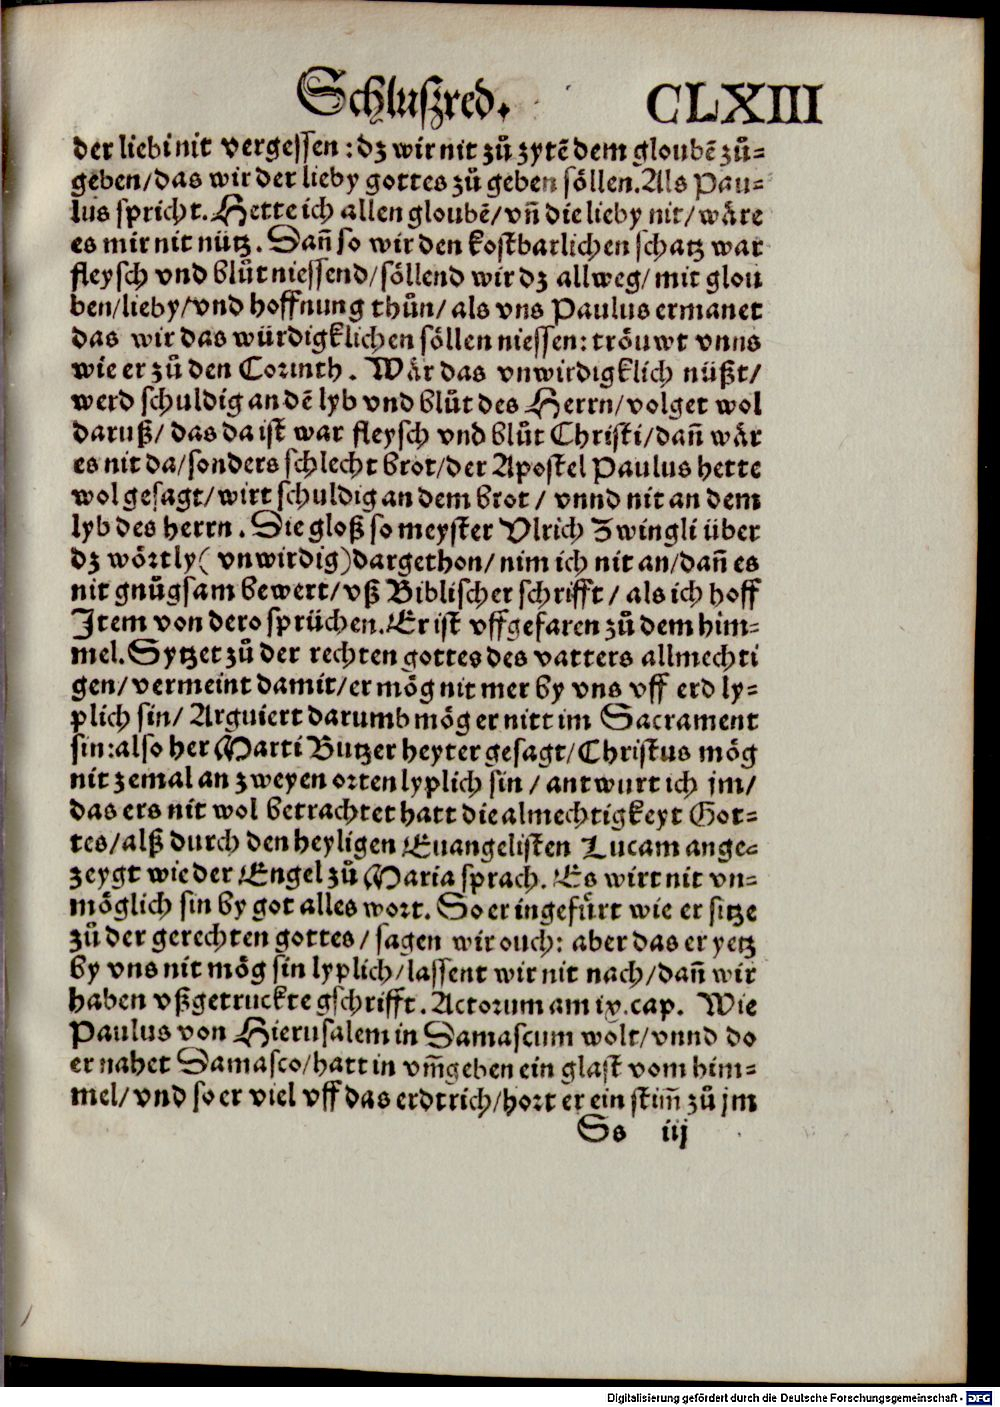 Schluszred. CLXIII
der liebi nit vergessen : dz wir nit zů zytē dem gloubē zů-
geben/das wir der lieby gottes zů geben söllen. Als Pau-
lus spricht. Hette ich allen gloubē/vñ die lieby nit/wäre
es mir nit nütz. Dañ so wir den kostbarlichen schatz war
fleysch vnd blůt niessend/söllend wir dz allweg/mit glou
ben/lieby/vnd hoffnung thůn/als vns Paulus ermanet
das wir das würdigklichen söllen niessen: tröuwt vnns
wie er zů den Corinth. Wär das vnwirdigklich nüßt/
werd schuldig an dē lyb vnd blůt des Herrn/volget wol
daruß/das da ist war fleysch vnd blůt Christi/dañ wär
es nit da/sonder schlecht brot/der Apostel Paulus hette
wol gesagt/wirt schuldig an dem brot/vnnd nit an dem
lyb des herrn. Die gloß so meyster Vlrich Zwingli über
dz wörtly( vnwirdig)dargethon/nim ich nit an/dañ es
nit gnůgsam bewert/vß Biblischer schrifft/als ich hoff
Item von dero sprüchen. Er ist vffgefaren zů dem him-
mel. Sytzet zů der rechten gottes des vatters allmechti
gen/vermeint damit/er mög nit mer by vns vff erd ly-
plich sin/Arguiert darumb mög er nitt im Sacrament
sin:also her Marti Butzer heyter gesagt/Christus mög
nit zemal an zweyen orten lyplich sin/antwurt ich jm/
das ers nit wol betrachtet hatt die almechtigkeyt Got-
tes/alß durch den heyligen Euangelisten Lucam ange-
zeygt wie der Engel zů Maria sprach. Es wirt nit vn-
möglich sin by got alles wort. So er ingefürt wie er sitze
zů der gerechten gottes/sagen wir ouch: aber das er yetz
by vns nit mög sin lyplich/lassent wir nit nach/dañ wir
haben vßgetruckte gschrifft. Actorum am ix. cap. Wie
Paulus von Hierusalem in Damascum wolt/vnnd do
er nahet Damasco/hatt in vm̃geben ein glast vom him-
mel/vnd so er viel vff das erdtrich/hort er ein stim̃ zů jm
Ss iij
Digitalisierung gefördert durch die Deutsche Forschungsgemeinschaft - DFG